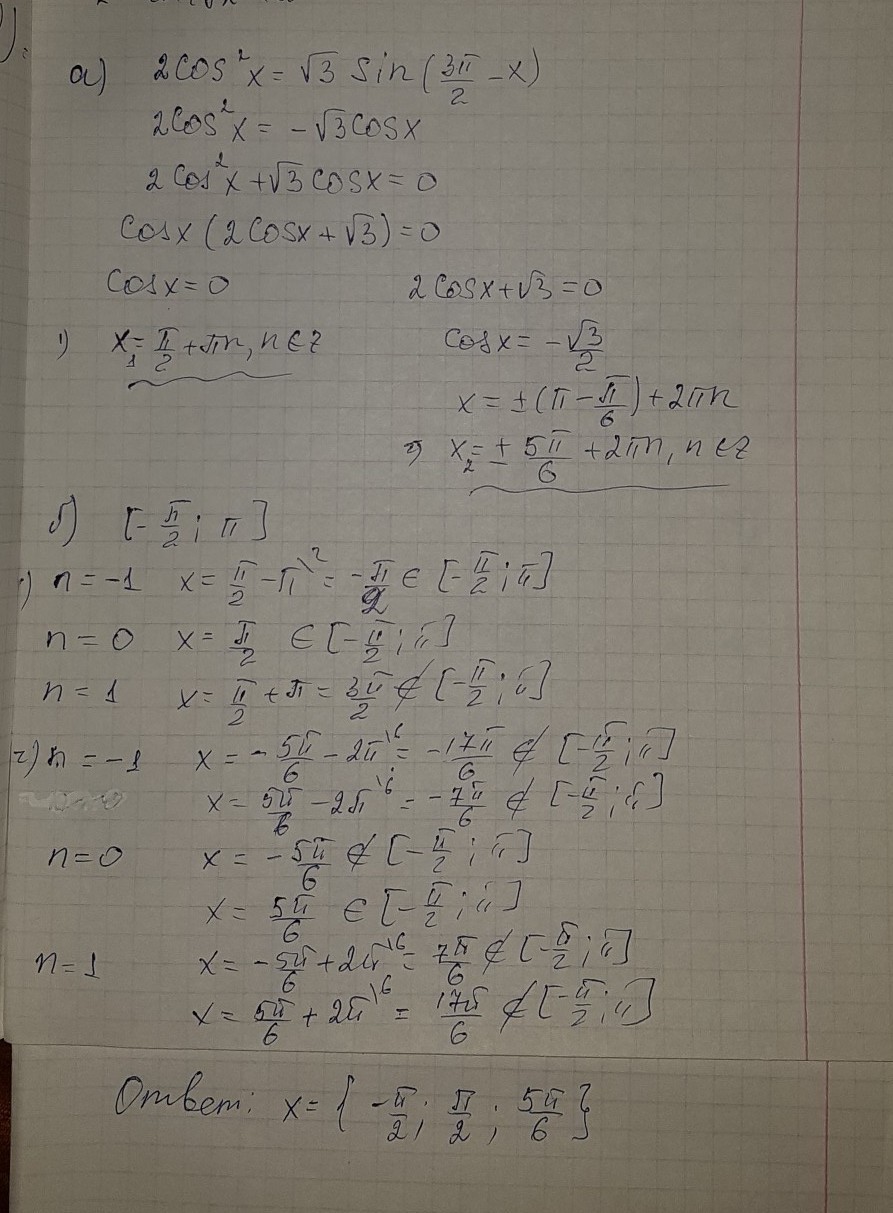 а) 2cos²x = √3 sin(3π/2 − x)
2cos²x = −√3cosx
2cos²x + √3cosx = 0
cosx(2cosx + √3) = 0
cosx = 0 2cosx + √3 = 0
1) x₁ = π/2 + πn, n ∈ z cosx = −√3/2
x = ±(π − π/6) + 2πn
2) x₂ = ± 5π/6 + 2πn, n ∈ z
б) [−π/2; π]
1) n = −1 x = π/2 − π\2 = −π/2 ∈ [−π/2; π]
n = 0 x = π/2 ∈ [−π/2; π]
n = 1 x = π/2 + π = 3π/2 ∉ [−π/2; π]
2) n = −1 x = −5π/6 − 2π\6 = −17π/6 ∉ [−π/2; π]
x = 5π/6 − 2π\6 = −7π/6 ∉ [−π/2; π]
n = 0 x = −5π/6 ∉ [−π/2; π]
x = 5π/6 ∈ [−π/2; π]
n = 1 x = −5π/6 + 2π\6 = 7π/6 ∉ [−π/2; π]
x = 5π/6 + 2π\6 = 17π/6 ∉ [−π/2; π]
Ответ: x = {−π/2; π/2; 5π/6}